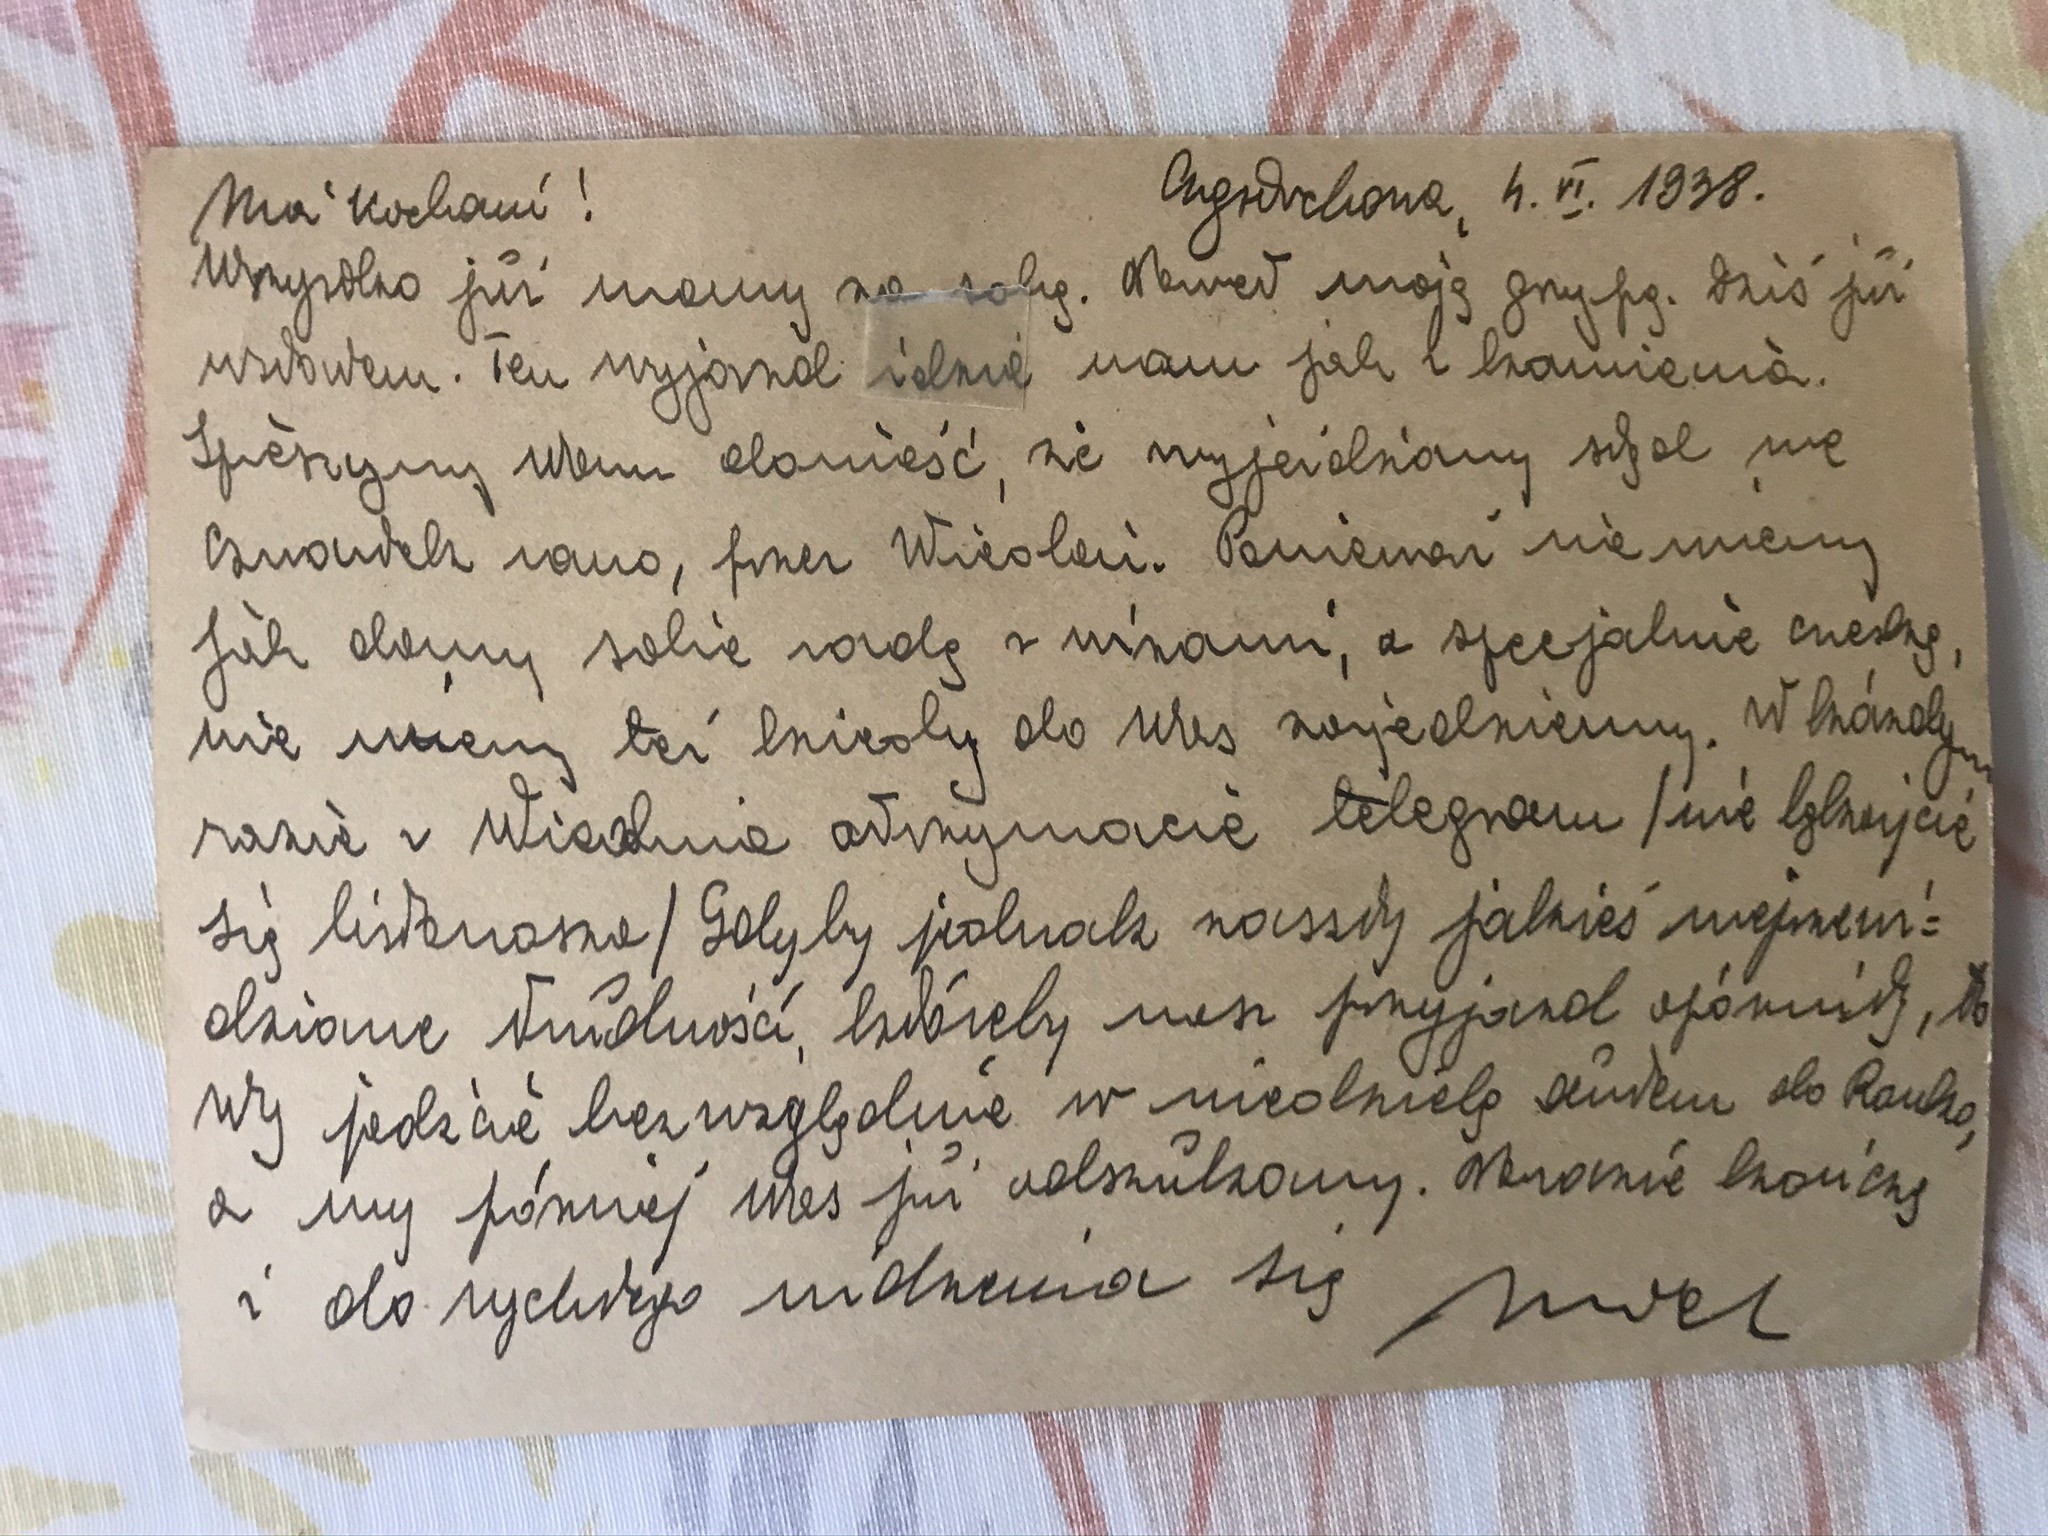 Moi Kochani! Częstochowa, 4. VI. 1938.
Wszystko już mamy za sobą. Nawet moją grypę. Dziś już
wstałem. Ten wyjazd idzie nam jak z kamienia.
Spieszymy Wam donieść, że wyjeżdżamy stąd we
czwartek rano, przez Wiedeń. Ponieważ nie wiemy
jak damy sobie radę z wizami, a specjalnie czeską,
nie wiemy też kiedy do Was zajedziemy. W każdym
razie z Wiednia otrzymacie telegram / nie lękajcie
się listonosza / Gdyby jednak zaszły jakieś nieprzewi=
dziane trudności, któreby nasz przyjazd opóźniły, to
Wy jedźcie bezwzględnie w niedzielę autem do
a my później Was już odszukamy. Narazie kończę
i do rychłego widzenia się